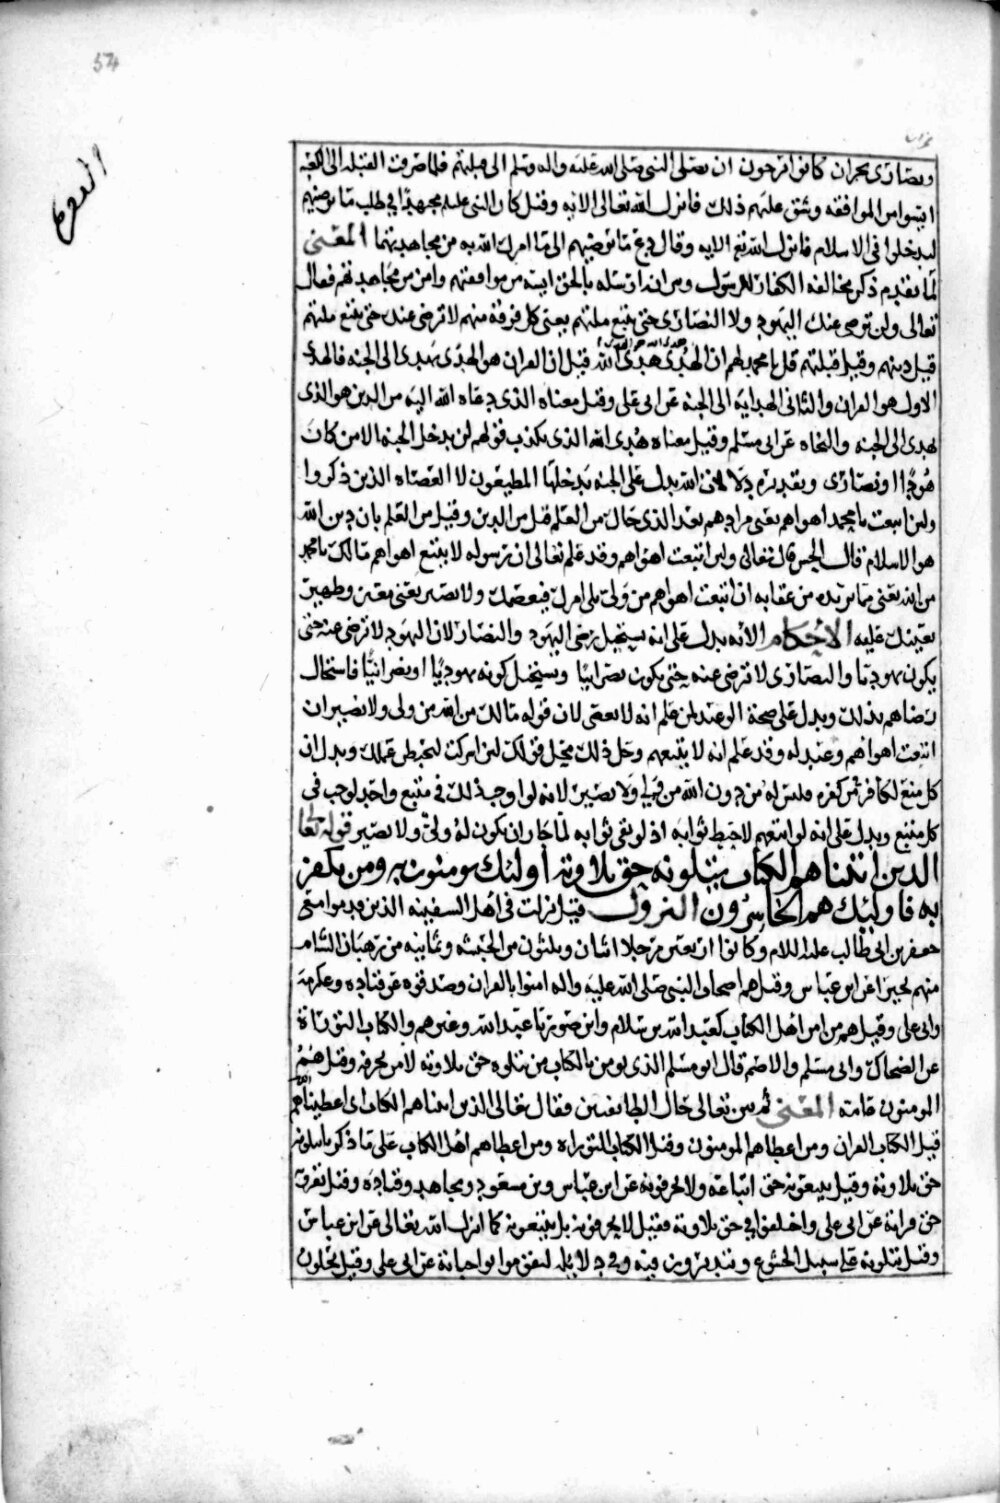 54
ونصارى نجران كانوا يرجون ان يصلى النبي صلى الله عليه واله وسلم الى قبلتهم فلما صرفت القبلة الى الكعبه
ايسوا من الموافقه وشق عليهم ذلك فانزل الله تعالى الايه وقيل كان النبي عليه مجتهدا في طلب ما يرضيهم
ليدخلوا في الاسلام فانزل الله تع الايه وقال دع ما يرضيهم الى ما امرك الله به من مجاهدتهم المعنى
لما تقدم ذكر مخالفه الكفار للرسول وبين انه ارسله بالحق ايسه من موافقتهم وامر من مجاهدتهم فقال
تعالى ولن ترضى عنك اليهود ولا النصارى حتى تتبع ملتهم يعنى كل فرقة منهم لا ترضى عنك حتى تتبع ملتهم
قيل دينهم وقيل قبلتهم قل يا محمد لهم ان الهدى هدى الله قيل ان القران هو الهدى يهدى الى الجنه فالهدى
الاول هو القران والثانى الهدايه الى الجنة عن ابى على وقيل معناه الذى دعاه الله اليه من الدين هو الذى
يهدى الى الجنه والنجاه عن ابى مسلم وقيل معناه هدى الله الذى يكذب قولهم لن يدخل الجنه الا من كان
هودا او نصارى وتقديره دلالة الله يدل على الجنه يدخلها المطيعون لا العصاه الذين ذكروا
ولئن اتبعت يا محمد اهواهم يعنى مرادهم بعد الذى جاك من العلم قيل من الدين وقيل من العلم بان دين الله
هو الاسلام قال الحسن قال تعالى ولئن اتبعت اهواهم وقد علم تعالى ان رسوله لا يتبع اهواهم مالك يا محمد
من الله يعنى مما يريده من عقابه ان اتبعت اهواهم من ولى يلى امرك فيعصمك ولا نصير يعنى معين وظهير
يعينك عليه الاحكام الايه يدل على انه يستحيل رضى اليهود والنصارى لان اليهود لا ترضى عنه حتى
يكون يهوديا والنصارى لا ترضى عنه حتى يكون نصرانيا ويستحيل كونه يهوديا او نصرانيا فاستحال
رضاهم بذلك ويدل على صحة الوعيد لمن علم انه لا يعصى لان قوله مالك من الله من ولى ولا نصير ان
اتبعت اهواهم وعيد له وقد علم انه لا يتبعهم وحل ذلك محل قولك لئن اشركت ليحبطن عملك ويدل ان
كل متبع لكافر في كفره فليس له من دون الله من ولى ولا نصير لانه لو اوجب ذلك في متبع واحد لوجب في
كل متبع ويدل على انه لو اتبعهم لاحبط ثوابه اذ لو بقى ثوابه لما جاز ان يكون له ولي ولا نصير قوله تعالى
الذين اتيناهم الكتاب يتلونه حق تلاوته اولئك يومنون به ومن يكفر
به فاولئك هم الخاسرون النزول قيل نزلت في اهل السفينه الذين قدموا مع
جعفر بن ابى طالب عليه السلام وكانوا اربعين رجلا اثنان وثلثون من الحبشه وثمانيه من رهبان الشام
منهم بحيرا عن ابن عباس وقيل هم اصحاب النبي صلى الله عليه واله امنوا بالقران وصدقوه عن قتاده وعكرمه
وابى على وقيل هم من امن اهل الكتاب كعبد الله بن سلام وابن صوريا عبد الله وغيرهم والكتاب التوراة
عن الضحاك وابى مسلم والاصم قال ابو مسلم الذى يومن بالكتاب من يتلوه حق تلاوته لا من يحرفه وقيل هم
المومنون عامته المعنى ثم بين تعالى حال الطائفتين فقال تعالى الذين اتيناهم الكتاب اى اعطيناهم
قيل الكتاب القران ومن اعطاهم المومنون وقيل الكتاب التوراه ومن اعطاهم اهل الكتاب على ما ذكرنا يتلونه
حق تلاوته وقيل يتبعونه حق اتباعه ولا يحرفونه عن ابن عباس وبن مسعود ومجاهد وقتاده وقيل يقروه
حق قراته عن ابى على واختلفوا في حق تلاوته فقيل لا يحرفونه بل يتبعونه كما انزل الله تعالى عن ابن عباس
وقيل يتلونه على سبيل الخشوع ويتدبرون فيه وفي دلائله ليعرفوا مواجباته عن ابى على وقيل يحلون